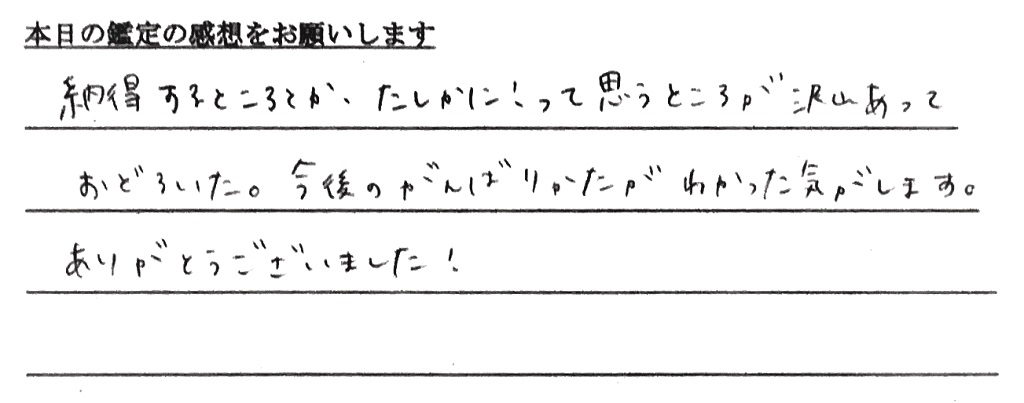 本日の鑑定の感想をお願いします
納得するところとか、たしかに!って思うところが沢山あって
おどろいた。今後のがんばりかたがわかった気がします。
ありがとうございました!